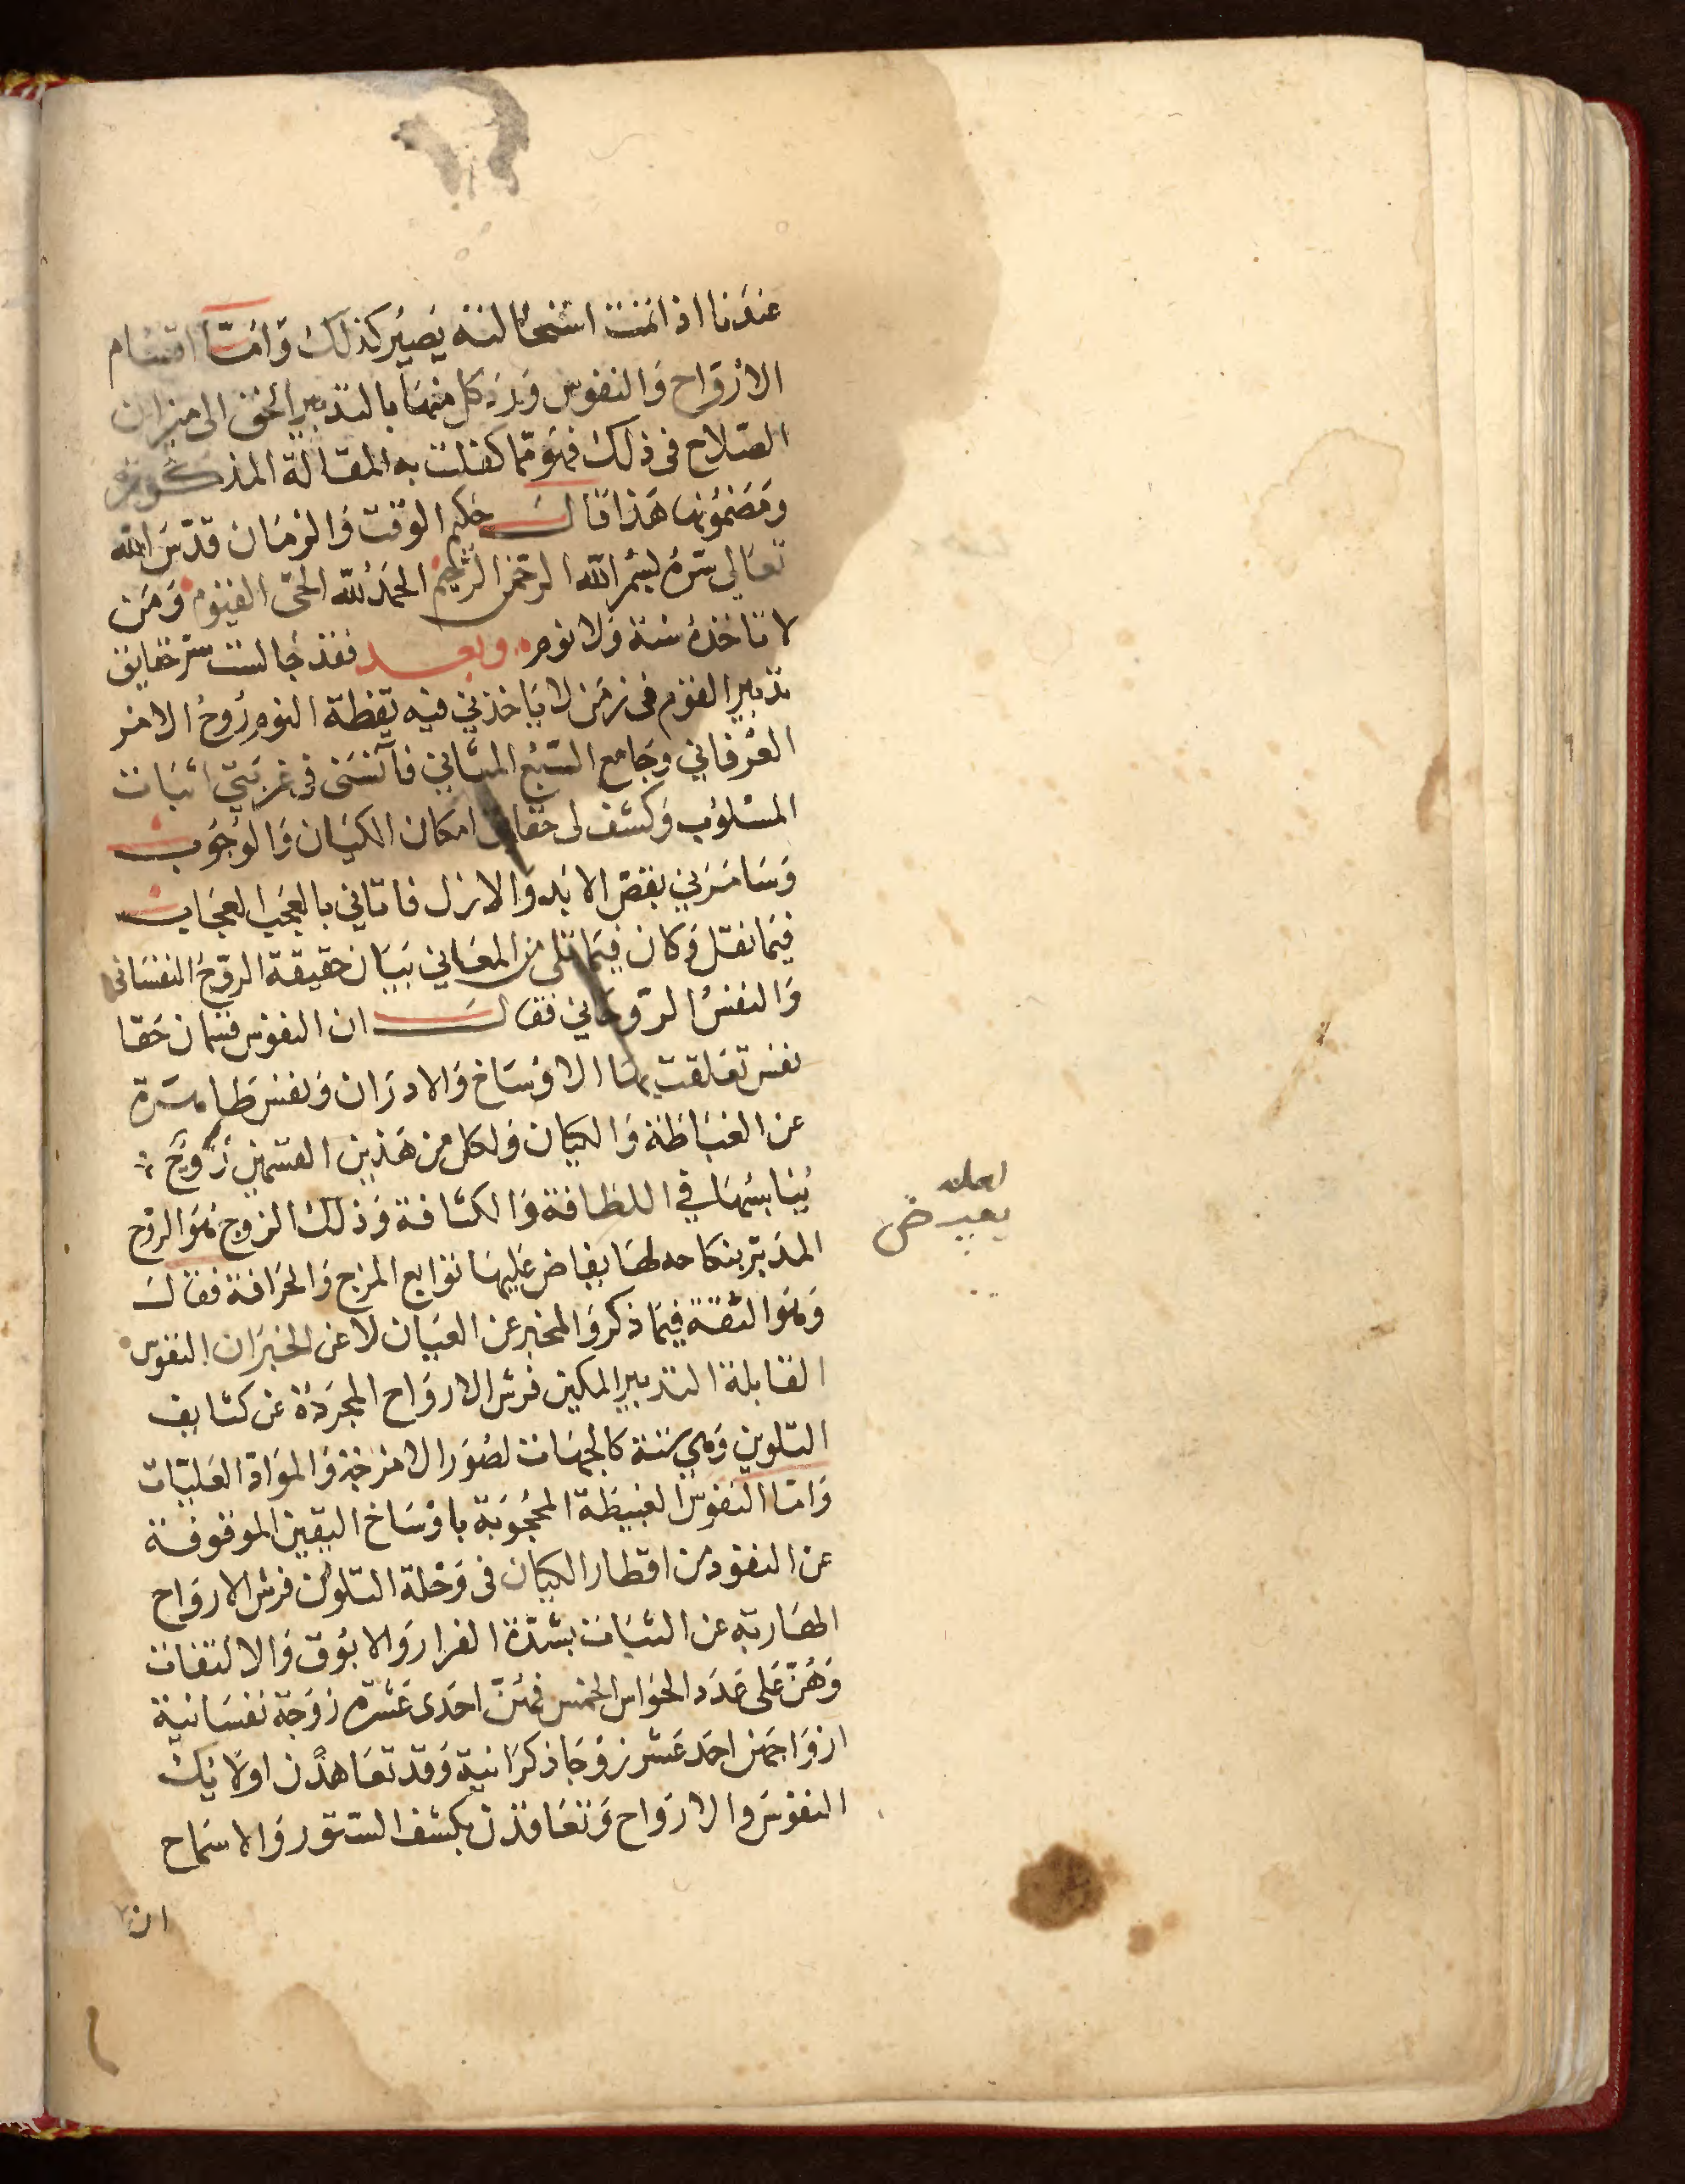 عندنا اذا تمت استحالته يصير كذلك واما اقسام
الارواح والنفوس ورد كل منها بالتدبير الحق الى ميزان
الصلاح فى ذلك فهو مما كفلت به المقالة المذكورة
ومضمونها هذا قال حكيم الوقت والزمان قدس الله
تعالى سره بسم الله الرحمن الرحيم الحمد لله الحى القيوم ومن
لا تاخذه سنة ولا نوم وبعد فقد جالست سر حقايق
تدبير القوم فى زمن لا ياخذني فيه يقظة النوم روح الامر
العرفاني وجامع السبع المثاني فآنسنى فى غربتي اثبات
المسلوب وكشف لى حقايق امكان الكيان والوجوب
وسامرني بقص الابد والازل فاتاني بالعجب العجاب
فيما نقل وكان فيما تلى من المعاني بيان حقيقة الروح النفسانى
والنفس الروحاني فقال ان النفوس قسمان حقا
نفس تعلقت بها الاوساخ والادران ونفس طاهرة
عن الغباظة والكيان ولكل من هذين القسمين زوج
يناسبها في اللطافة والكثافة وذلك الزوج هو الروح
المدبر بنكاحه لها يفاض عليها توابع المزج والحرافة فقال
وهو الثقة فيما ذكر والمخبر عن العيان لا عن الخبر ان النفوس
القابلة التدبير المكين فرش الارواح المجردة عن كثايف
التلوين وهي ستة كالجهات لصور الامزجة والمواد العليات
واما النفوس الغبيظة المحجوبة باوساخ اليقين الموقوفة
عن النفوذ من اقطار الكيان فى وحلة التلون فرش الارواح
الهاربة عن الثبات بشدة الفرار والابوق والالتفات
وهن على عدد الحواس الخمس فهن احدى عشرة زوجة نفسانية
ازواجهن احد عشر زوجا ذكرانية وقد تعاهدن اولائك
النفوس والارواح وتعاقدن بكشف الستور والاسماح
ان
لعله